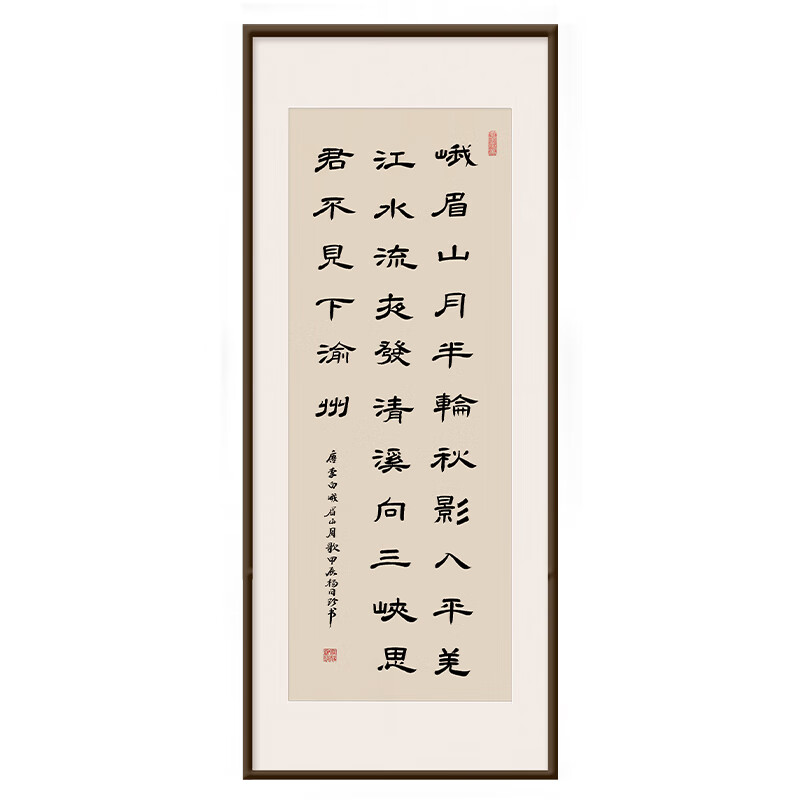 峨眉山月半輪秋影入平羌
江水流夜發清溪向三峽思
君不見下渝州
唐李白峨眉山月歌甲辰杨珍书